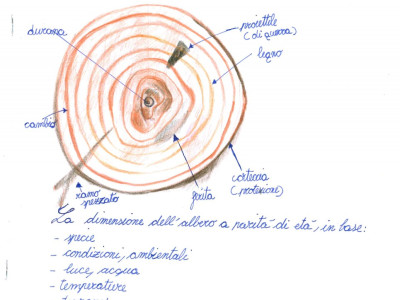 durame
proiettile
(di guerra)
legno
cambio
ramo
spezzato
ferita
corteccia
(protezione)
La dimensione dell'albero a parità di età, in base:
- specie
- condizioni, ambientali
- luce, acqua
- temperature